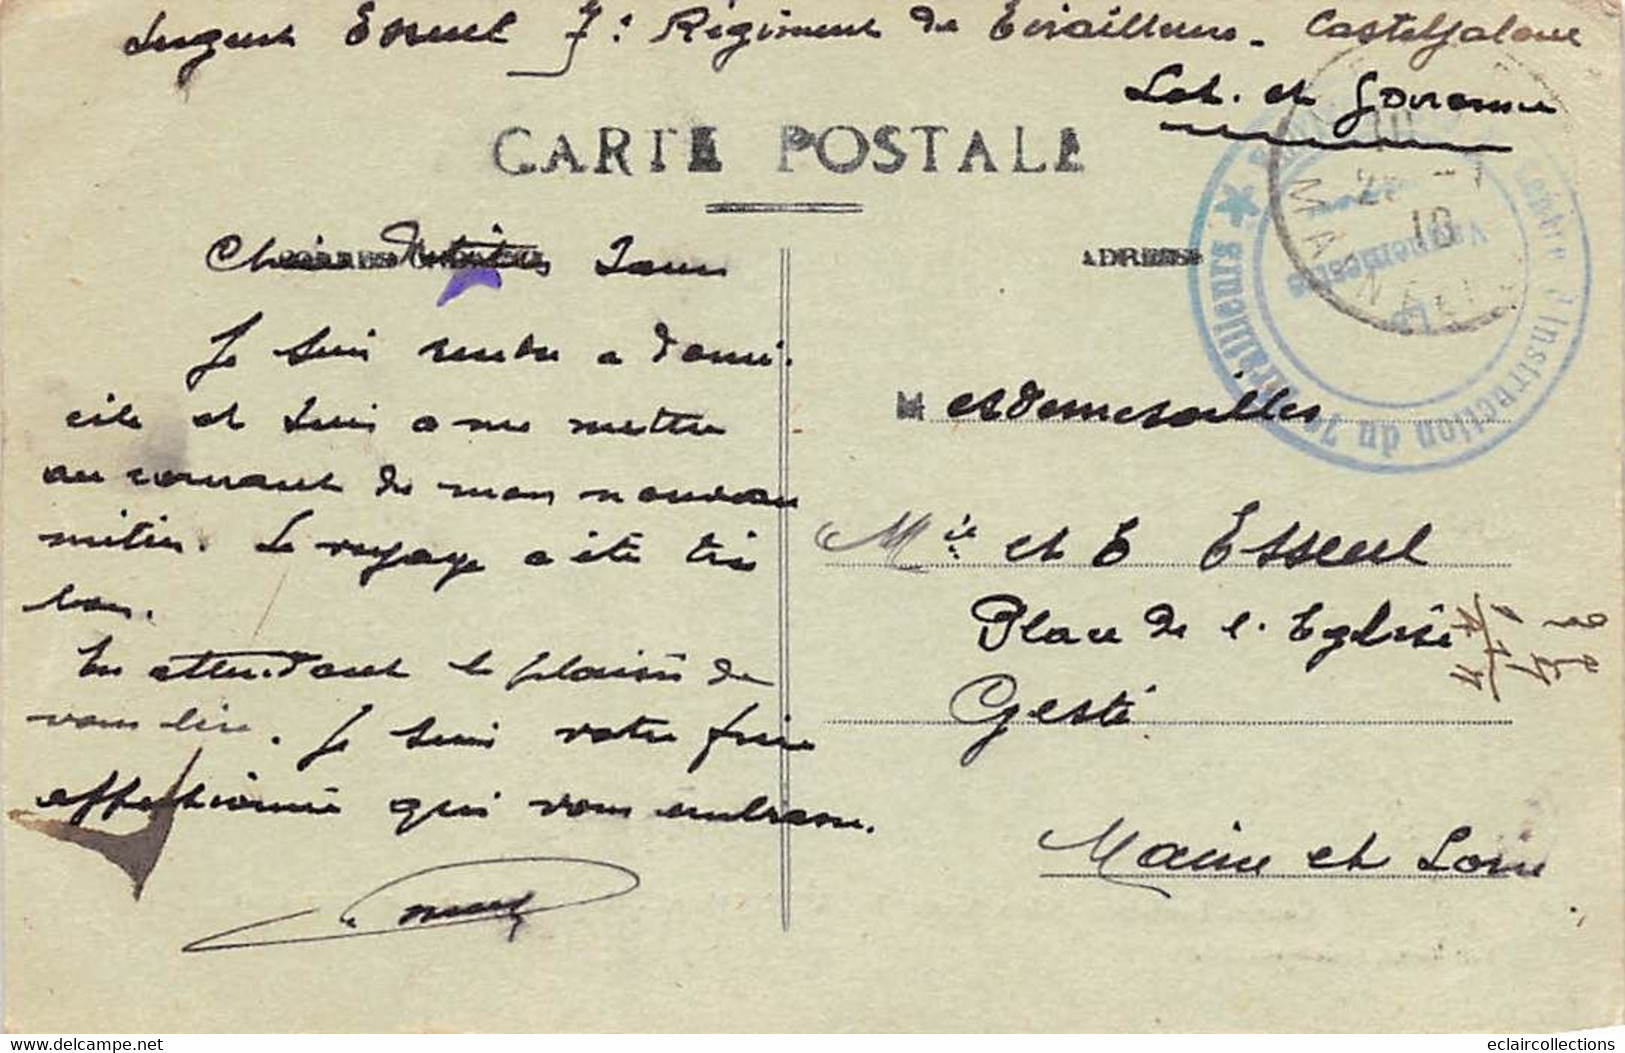 Sergent Esseul 7e Régiment de Tirailleurs - Casteljaloux
Lot. et Garonne
CARTE POSTALE
Chères Petites Sœurs
ADRESSE
Je suis rendu a domi-
cile et suis a me mettre
au courant de mon nouveau
métier. Le voyage a été très
bon.
En attendant le plaisir de
vous lire. Je suis votre frère
affectionné qui vous embrasse.
Esseul
M esdemoiselles
Mie et E Esseul
Place de l'Eglise
Gesté
Maine et Loire
Centre d'Instruction du 7e Tirailleurs
Le
Vaguemestre
eclaircollections